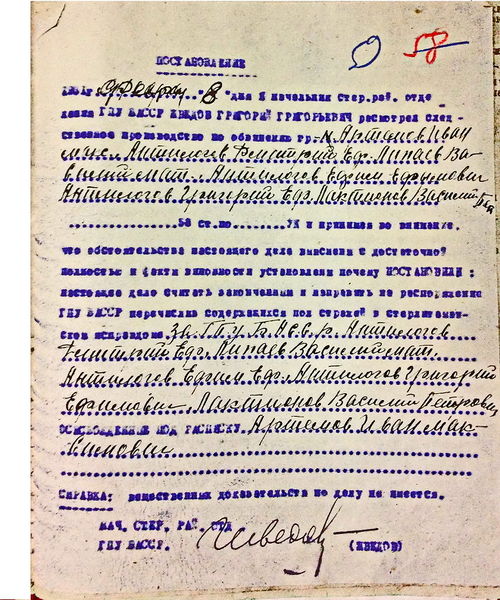 58
ПОСТАНОВЛЕНИЕ
февраля "8" дня Я начальник Стер.рай. отде
ления ГПУ БАССР ШВЕДОВ ГРИГОРИЙ ГРИГОРЬЕВИЧ расмотрел след-
ственное производство по обвинению гр-н Артемов Иван
Антилогов Дмитрий Ефр. Липаев Ва-
силий мат. Антилогов Ефрем Ефимович
Антилогов Григорий Еф. Лактионов Василий Петр
58 ст.по УК и принимая во внимание.
что обстоятельства настоящего дела выяснены с достаточной
полностью и факты виновности установлены почему ПОСТАНОВИЛ:
настоящее дело считать законченным и направить на распоряжение
ГПУ БАССР перечислив содержащихся под стражей в стерлитамак-
ском исправдоме За Г.П.У. Б.А.С.С.Р. Антилогов
Дмитрий Ефр. Липаев Василий мат.
Антилогов Ефрем Еф. Антилогов Григорий
Ефимович, Лактионов Василий Петрович
ОСВОБОЖДЕННЫЕ ПОД РАСПИСКУ. Артемов Иван мак-
симович
СПРАВКА: вещественных доказательств по делу не имеется.
НАЧ. СТЕР. РАЙ. ОТД
ГПУ БАССР. Шведов (ШВЕДОВ)